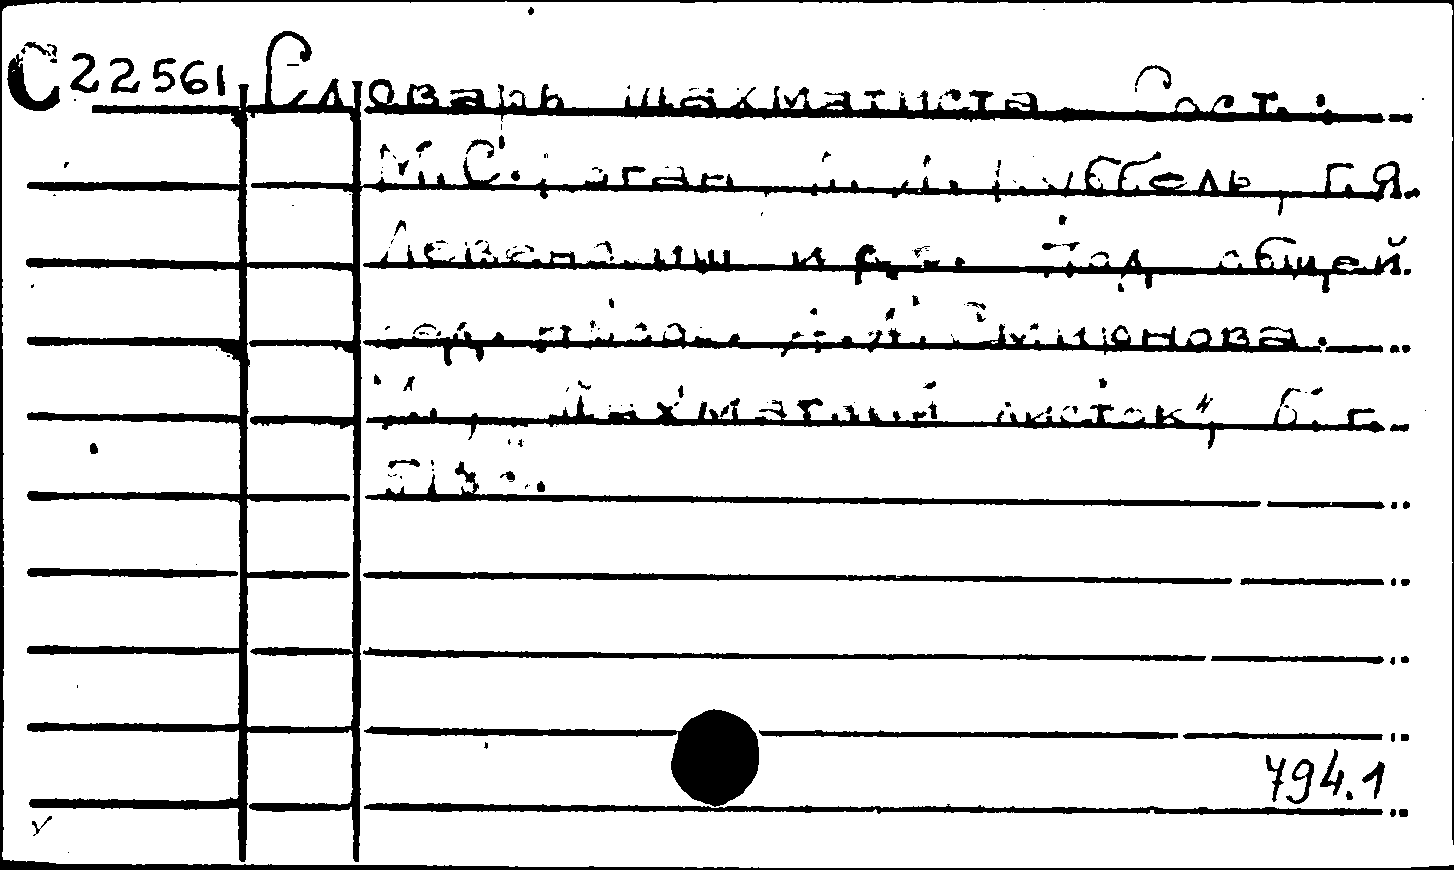 С 22561 Словарь шахматиста. Сост.:
М.С. Коган, Л. И. Куббель, Г.Я.
Левенфиш и др. Под общей
ред. проф. Смирнова.
Л., „Шахматный листок“, б. г.
513 с.
794.1